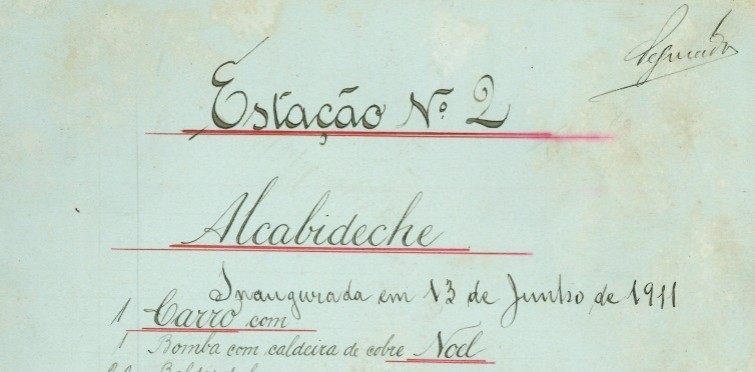 Estação Nº 2
Alcabideche
Inaugurada em 13 de Junho de 1911
1 Carro com
1 Bomba com caldeira de cobre Noel